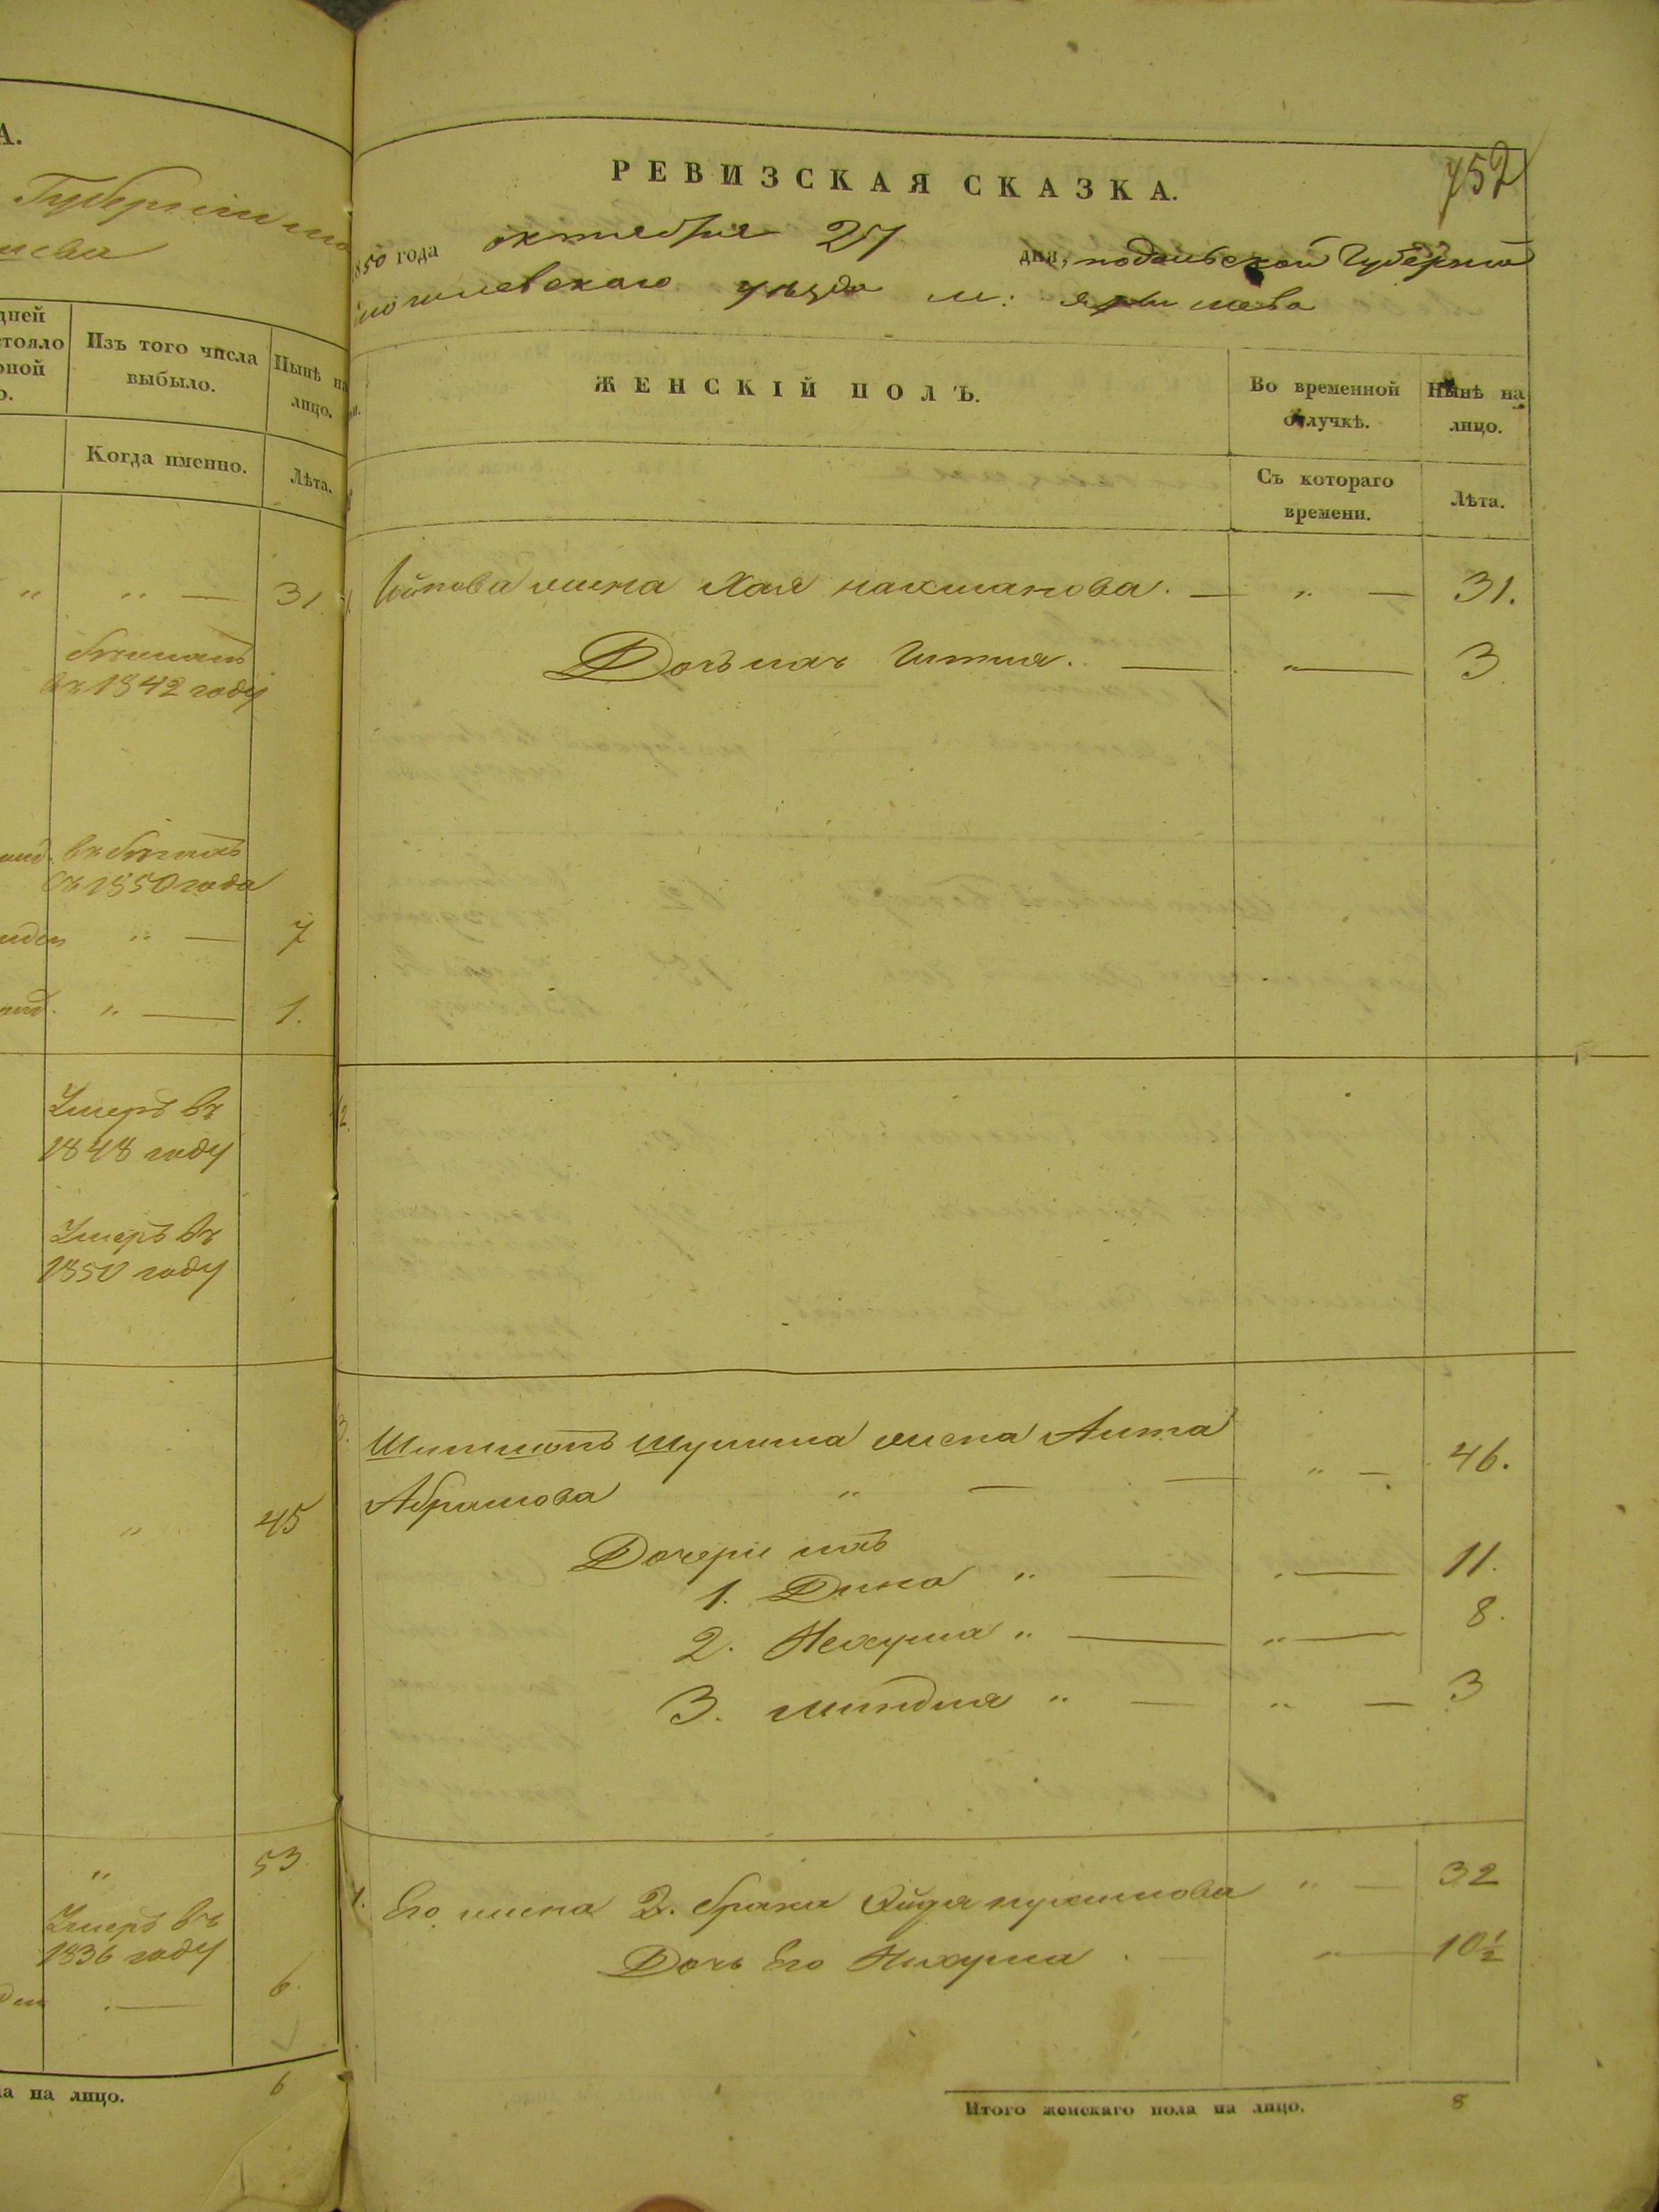 А.
Губерніи мо
шева
дней
стояло
рной
о.
Изъ того числа
выбыло.
Нынѣ на
лицо.
Когда именно.
Лѣта.
" " — 31.
бѣжалъ
въ 1842 году
въ бѣгахъ
съ 1850 года
" — 7
" — 1.
Умеръ въ
1848 году
Умеръ въ
1850 году
" 45
" 53.
Умеръ въ
1836 году
6.
на на лицо. 6
752
РЕВИЗСКАЯ СКАЗКА.
1850 года октября 27 дня, подольской Губерніи
могилевскаго уѣзда м: яришева
ЖЕНСКІЙ ПОЛЪ.
Во временной
отлучкѣ.
Нынѣ на
лицо.
Съ котораго
времени.
Лѣта.
жена Хая нахманова. — " — 31.
Дочь ихъ Гитля. — " — 3
2.
3. Шулима жена Анта
Абрамова " — — " — 46.
Дочери ихъ
1. Дина " — " — 11.
2. Нехума " — " — 8.
3. Миндля " — " — 3
4. Его жена 2. брака " — 32
Дочь Его Нихума. — " — 10½
Итого женскаго пола на лицо. 8